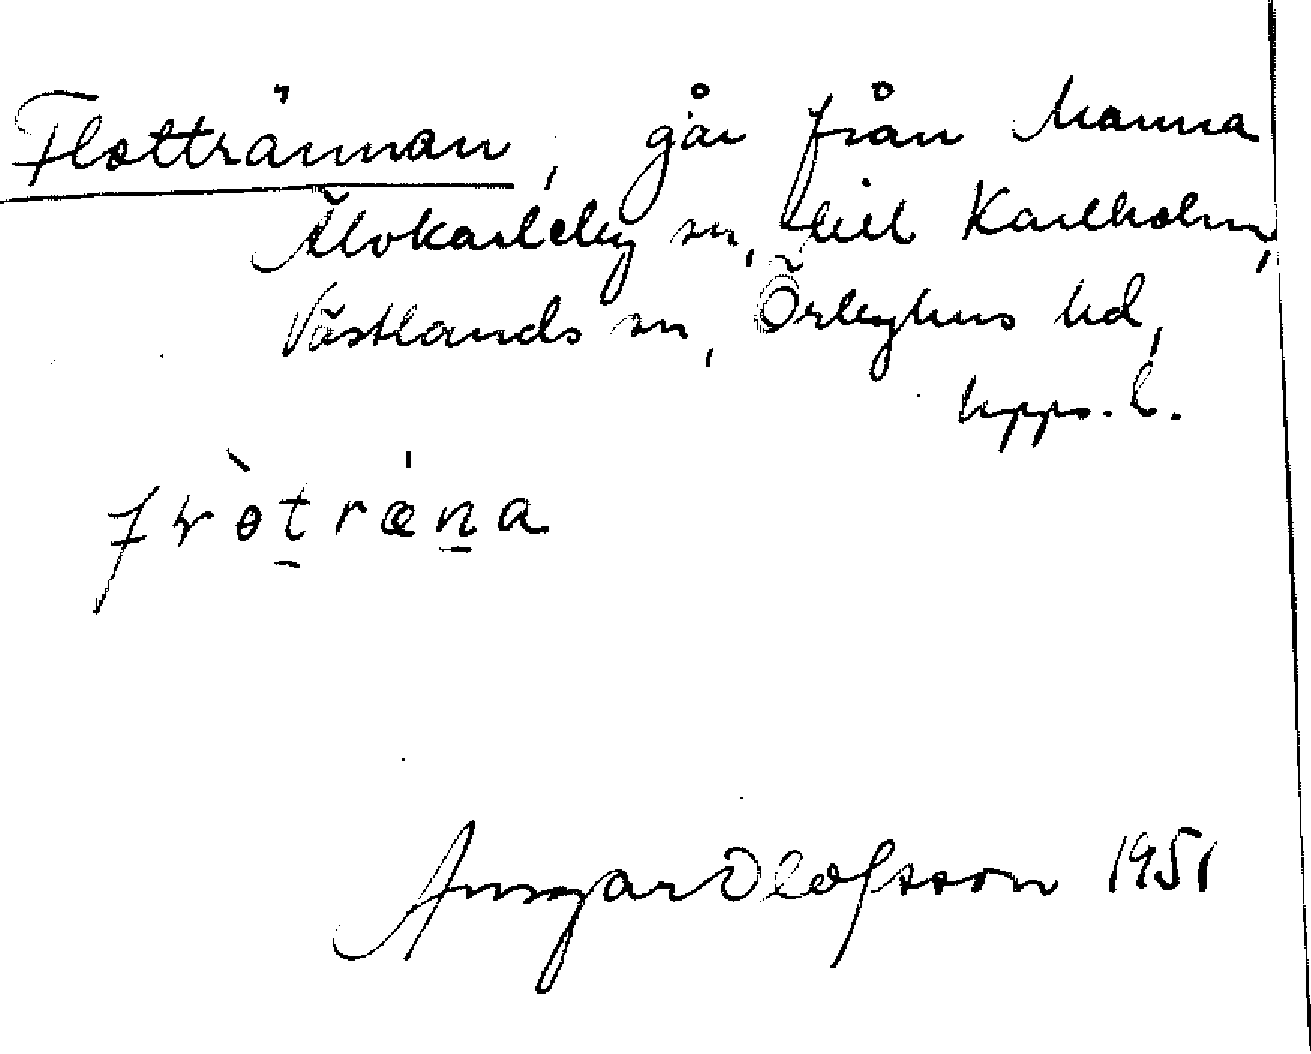 Flottrännan, går från Marma
Älvkarleby sn, till Karlholm,
Västlands sn, Örbyhus hd,
Upps. l.
Ansgar Olofsson 1951